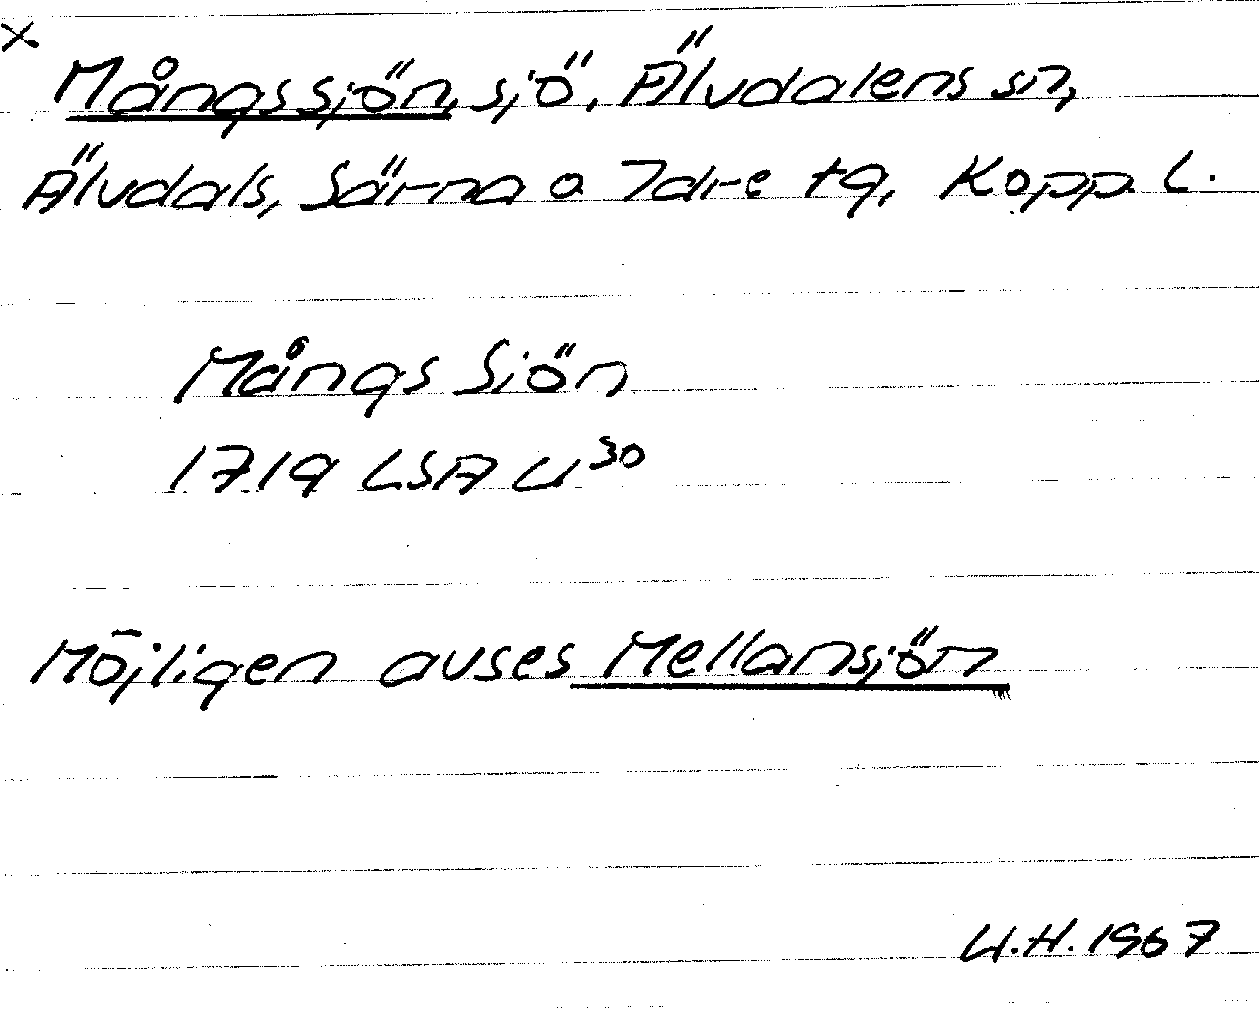 x
Mångssjön, sjö, Älvdalens sn,
Älvdals, Särna o Idre tg, Kopp L.
Mångs Siön
1719 LSA U³⁰
Möjligen avses Mellansjön
U.H. 1967